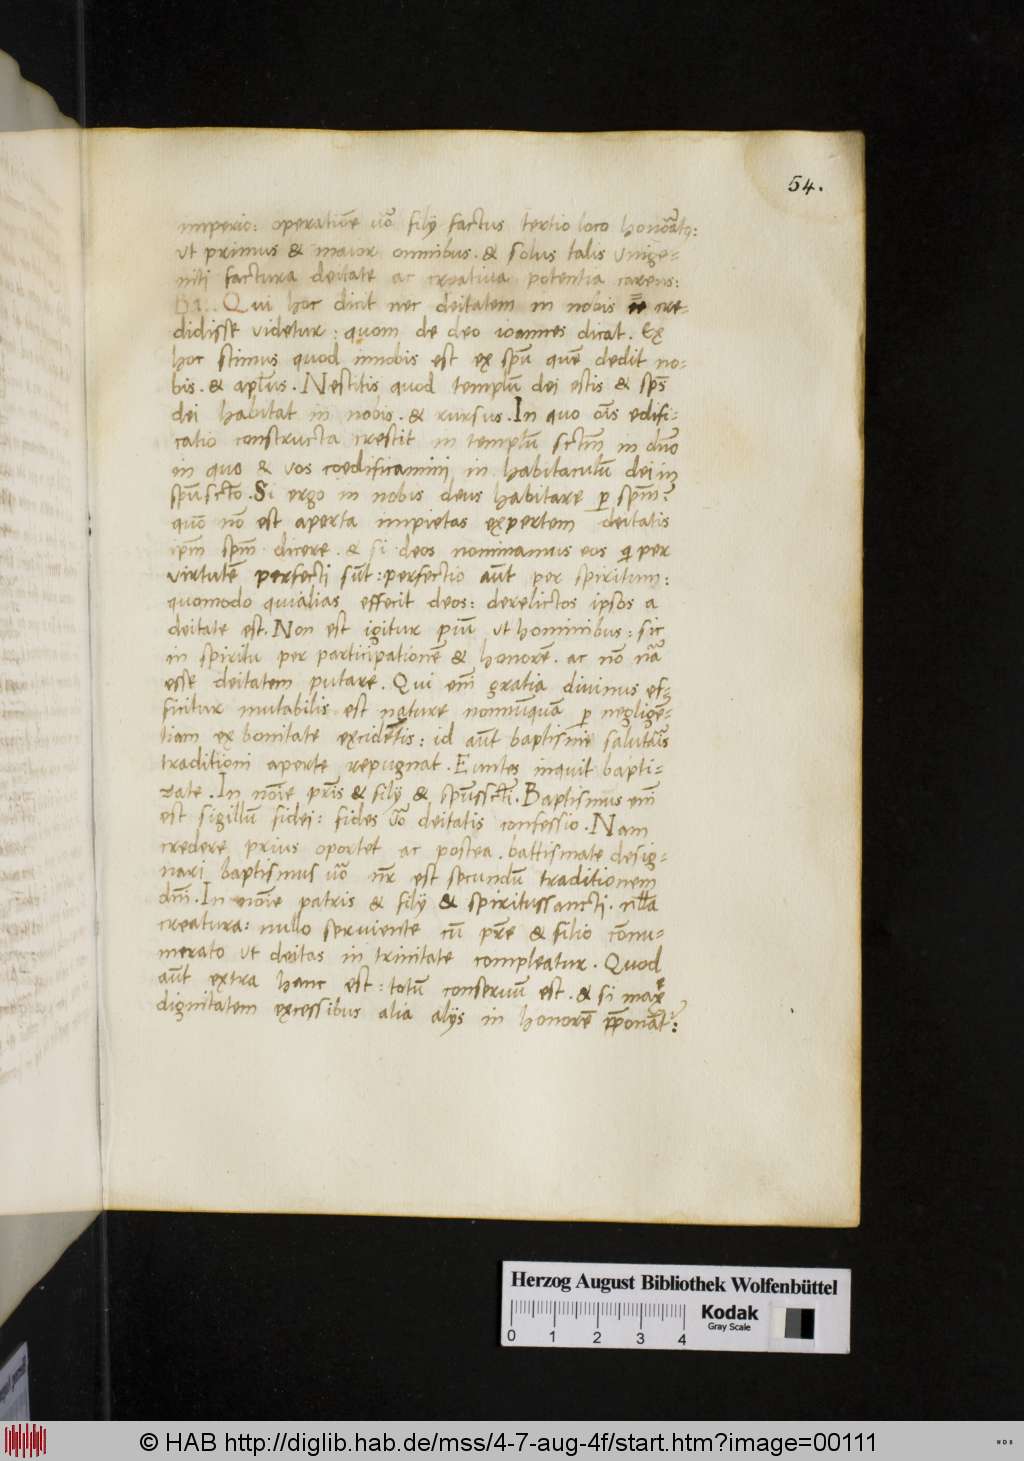 54.
imperio: operatiōe uō filij factus tertio loco honōatq:
ut primus & maior omnibus. & solus talis unige=
niti factura deitate ac creatiua potentia carens:
BA.. Qui hoc dicit nec deitatem in nobis ēē cre=
didisse videtur: quom de deo ioannes dicat. Ex
hoc scimus quod innobis est ex spū quē dedit no=
bis. & apl'us. Nescitis quod templū dei estis & sp̄s
dei habitat in nobis. & rursus. In quo oīs edifi=
catio constructa crescit in templū sctm̄ in dn̄o
in quo & vos coedificamini in habitaculū dei in
spū scto. Si ergo in nobis deus habitare p spm̄
quō nō est aperta impietas expertem deitatis
ipm̄ spm̄ dicere. & si deos nominamus eos q per
virtutē perfecti sūt: perfectio aūt per spiritum:
quomodo quialias effecit deos: derelictos ipsos a
deitate est. Non est igitur piū ut hominibus: sic
in spiritu per participationē & honorē. ac nō nāa
esse deitatem putare. Qui em̄ gratia diuinus ef=
ficitur mutabilis est nature nonnūquā p negligē=
tiam ex bonitate excidentis: id aūt baptismie salutāis
traditioni aperte repugnat. Euntes inquit bapti=
zate. In noīe pr̄is & filij & spūsscti. Baptismus em̄
est sigillū fidei: fides uō deitatis confessio. Nam
credere prius oportet ac postea. battismate desig=
nari baptismus uō nr̄ est secundū traditionem
dm̄i. In noīe patris & filij & spiritussancti. nlla
creatura: nullo seruiente cū pr̄e & filio cōnu=
merato ut deitas in trinitate compleatur. Quod
aūt extra hanc est: totū conseruū est. & si max̄
dignitatem excessibus alia alijs in honorē p̄ponāt:
Herzog August Bibliothek Wolfenbüttel
0 1 2 3 4
Kodak
Gray Scale
© HAB http://diglib.hab.de/mss/4-7-aug-4f/start.htm?image=00111